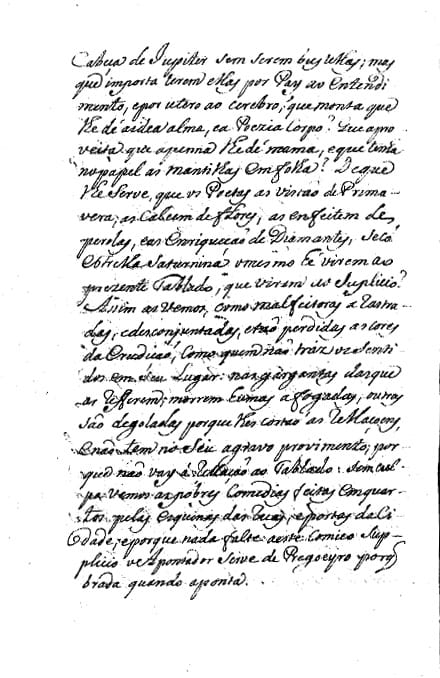 Cabeca de Jupiter sem serem buscadas; mas
que importa terem ellas por Pay ao Entendi
mento, e por utero ao cerebro; que monta que
lhe dé a idea alma, e a Poezia Corpo? Que apro
veita que a penna lhe dé mama, e que tenha
no papel as mantilhas Em folha? De que
lhe Serve, que os Poetas as vistão de Prima
vera, as Calcem de flores, as enfeitem de
perolas, e as Enriqueção de Diamantes, se có
Estrella Saturnina o mesmo hé virem ao
prezente Tablado, que virem ao Suplicio?
Assim as vemos, como malfeitoras arrastra
das, e desconjuntadas, e tão perdidas as cores
da Erudição, Como quem não traz os senti
dos em seu Lugar: nas gargantas das que
as Referem; morrem humas afogadas, outras
são degoladas porque lhes cortão as Relaçoens,
E não tem no Seu agravo provimento; por
que não vay á Rellação ao Tablado. Sem cul
pa vemos as pobres Comedias feitas Em quar
tos pelas Esquinas das Ruas, e portas da Ci
dade; e porque nada falte a este Comico Sup
plicio o Apontador Serve de Pregoeyro porq̃
brada quando aponta.